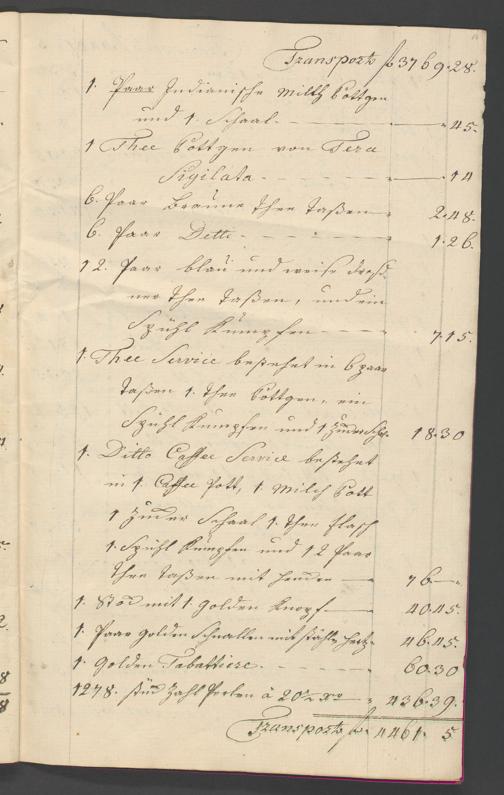 Transport f 3769.28.
1. Paar Indianische Milch Pottgen
und 1. Schaal - - - " - 45.
1 Thee Pottgen von Tera
Sigilata - - - " - 14
6. Paar Braune Thee Taßen " 2.48.
6. Paar Detto - - - " 1.26.
12. Paar blau und weise dreß
ner Thee Taßen, und ein
Spühl Kumpfen - - - 7.15.
1. Thee Service bestehet in 6 paar
Taßen 1. Thee Pottgen, ein
Spühl Kumpfen und 1 Zucker Schaal 18.30
1. Ditto Caffee Service bestehet
in 1. Caffee Pott, 1. Milch Pott
1 Zucker Schaal 1. Thee flasch
1. Spühl Kumpfen und 12 Paar
Thee Taßen mit - " 76 -
1. Stock mit 1. golden Knopf - " 40.45.
1. Paar golden Schnallen mit stähle " 46.45.
1. Golden Tabattiere. - - - " 60.30
1278. stück Zahl Perlen à 20½ xr " 436.39.
Transport f. 4461. 5